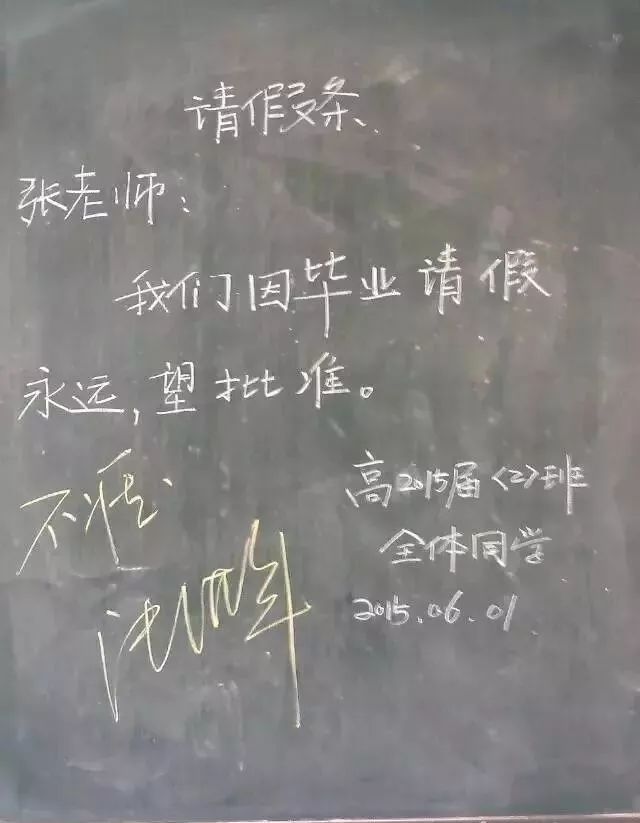 请假条
张老师：
我们因毕业请假
永远，望批准。
不准
高2015届<2>班
全体同学
2015.06.01